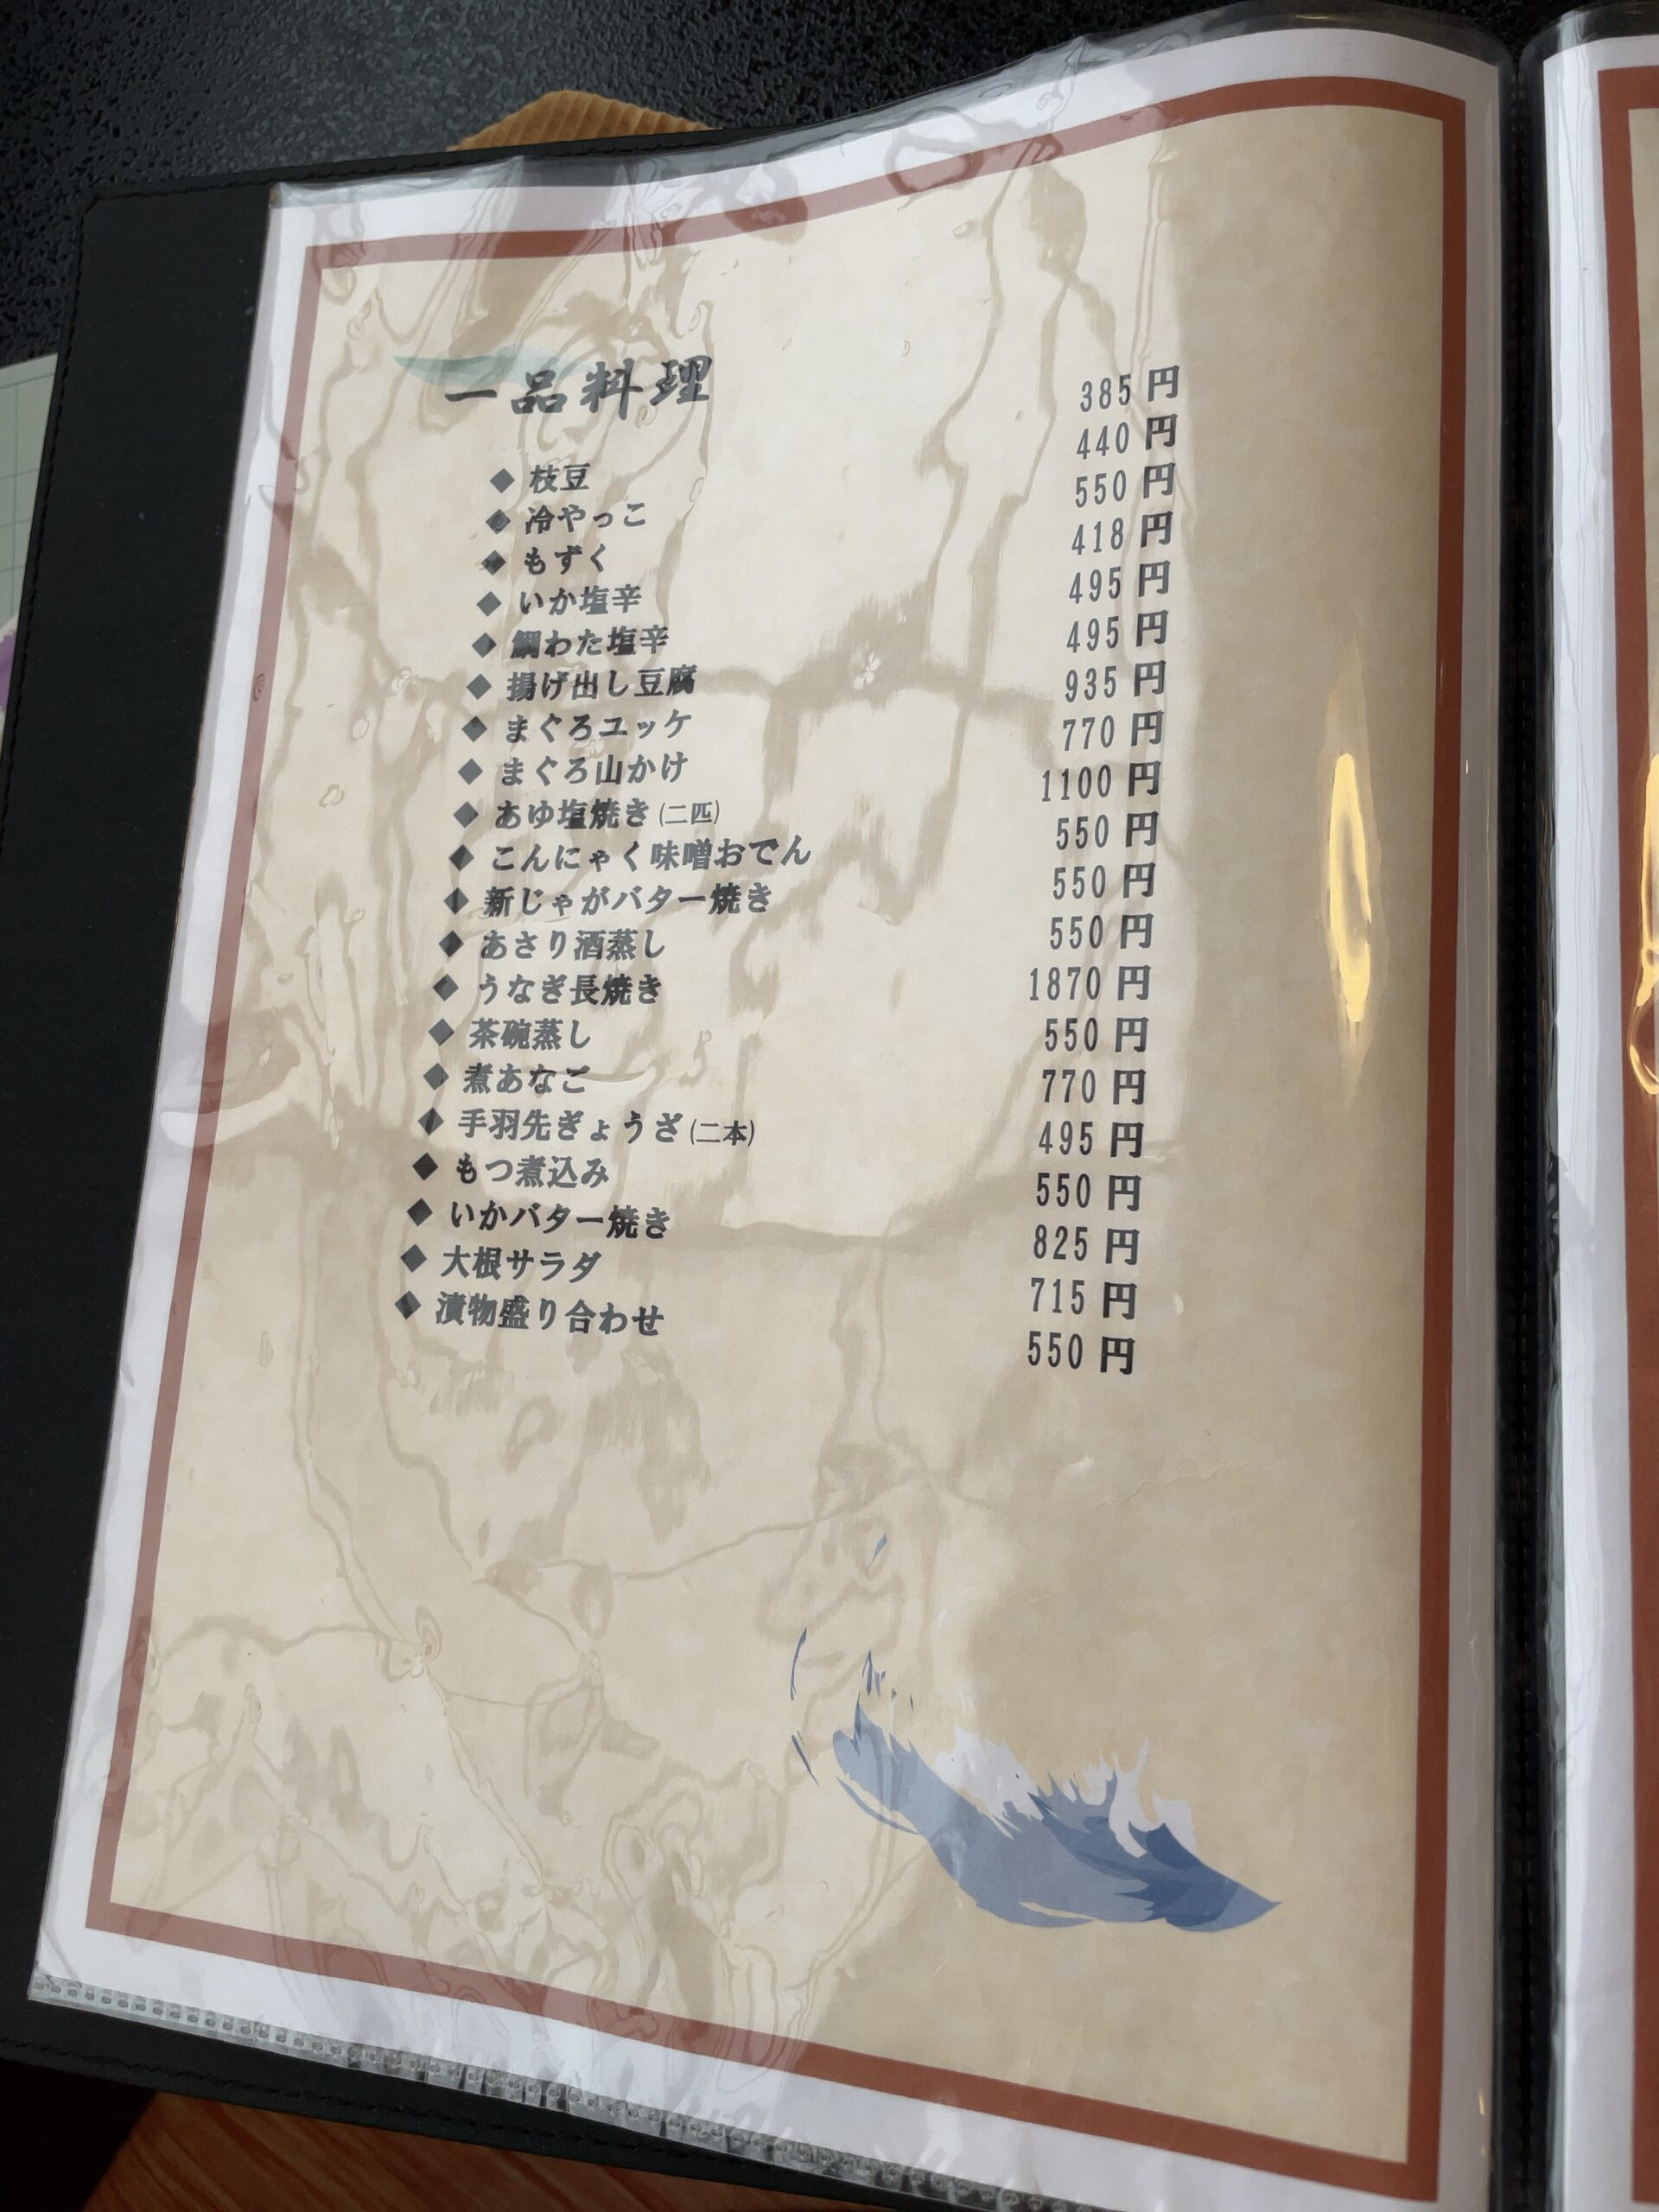 一品料理
◆ 枝豆 385 円
◆ 冷やっこ 440 円
◆ もずく 550 円
◆ いか塩辛 418 円
◆ 鯛わた塩辛 495 円
◆ 揚げ出し豆腐 495 円
◆ まぐろユッケ 935 円
◆ まぐろ山かけ 770 円
◆ あゆ塩焼き(二匹) 1100 円
◆ こんにゃく味噌おでん 550 円
◆ 新じゃがバター焼き 550 円
◆ あさり酒蒸し 550 円
◆ うなぎ長焼き 1870 円
◆ 茶碗蒸し 550 円
◆ 煮あなご 770 円
◆ 手羽先ぎょうざ(二本) 495 円
◆ もつ煮込み 550 円
◆ いかバター焼き 825 円
◆ 大根サラダ 715 円
◆ 漬物盛り合わせ 550 円